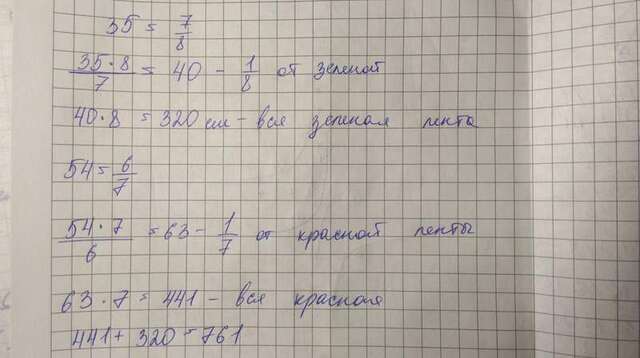 35 = 7/8
35·8/7 = 40 - 1/8 от зеленой
40·8 = 320 см - вся зеленая лента
54 = 6/7
54·7/6 = 63 - 1/7 от красной ленты
63·7 = 441 - вся красная
441 + 320 = 761